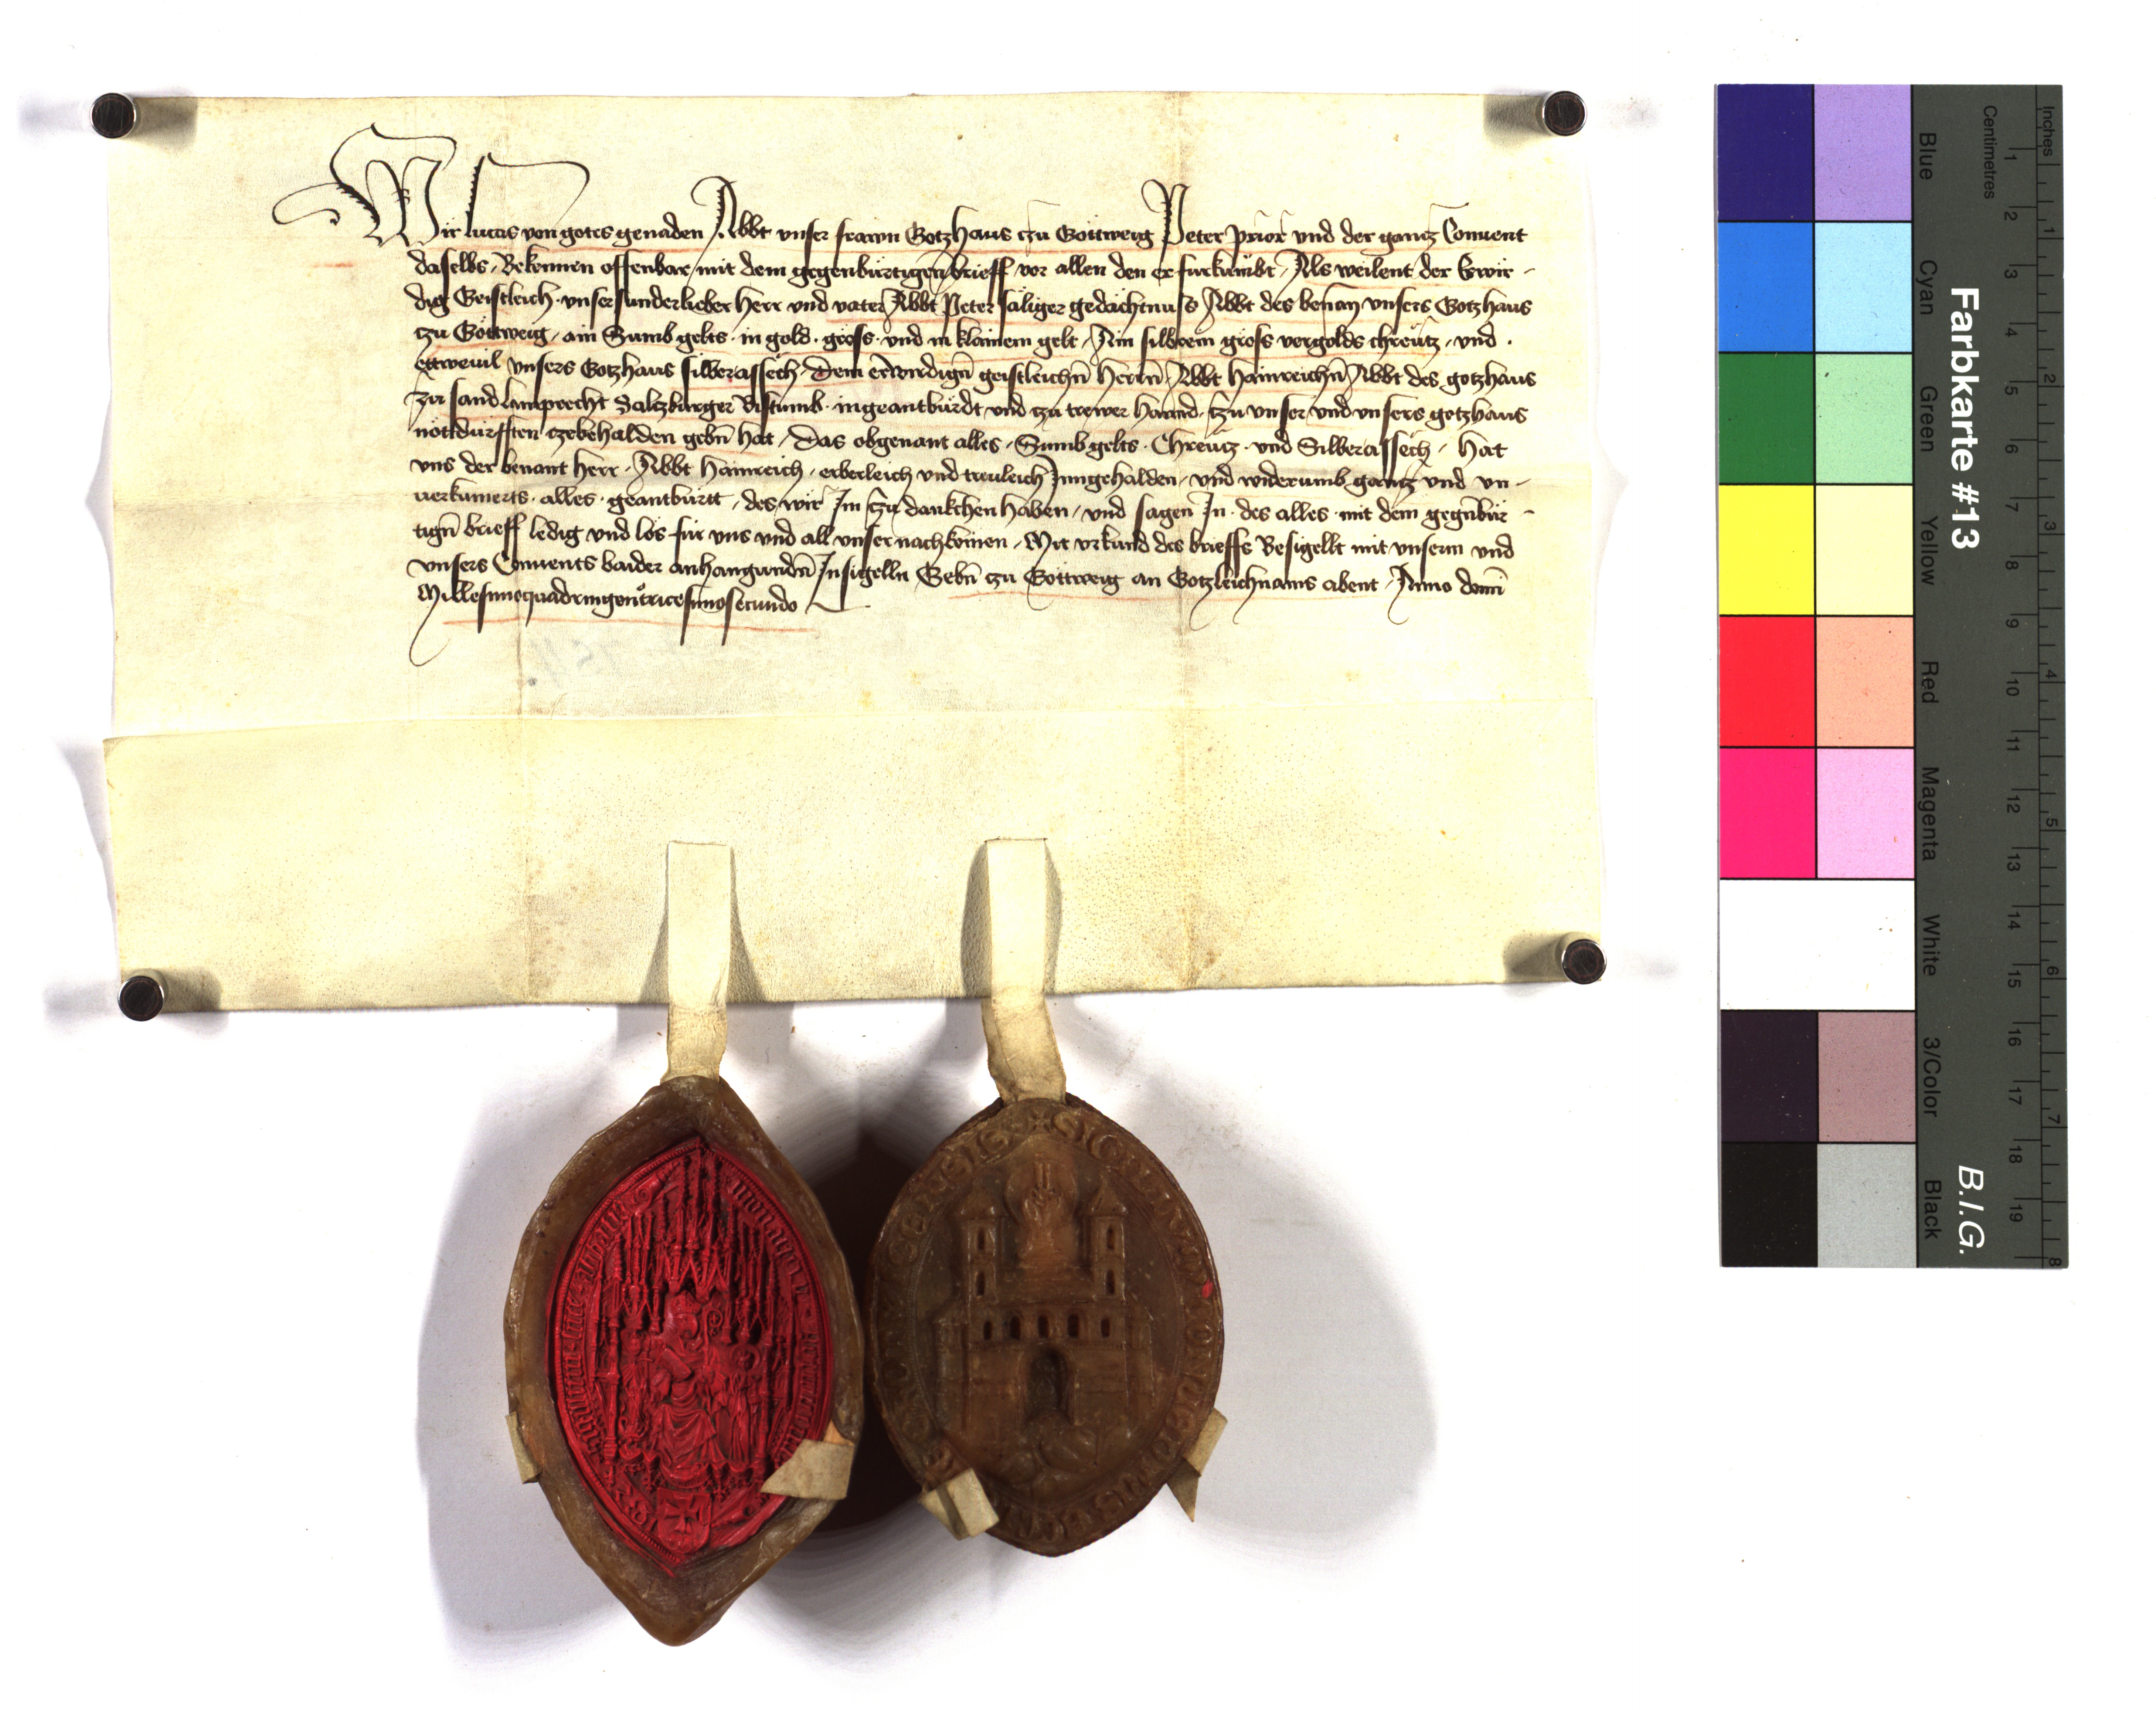 Wir Lucas von gotes genaden Abbt vnser frawn Gotzhaus czu Göttweig Peter prior vnd der gantz Conuent
daselbs, Bekennen offenbar mit dem gegenbürtigen brieff vor allen den er fürkumbt, Als weilent der Erwir-
dig Geistleich vnser sunderlieber herr vnd vater Abbt Peter säliger gedächtnuss Abbt des benan̄ vnsers Gotzhaus
tzu Göttweig, ain Sumb gelts in gold gross vnd in klainem gelt, Ain silbrein gross vergolds chreutz, vnd
ettweuil vnsers Gotzhaus silberassech Dem erwirdign̄ geistleichn̄ herrn̄ Abbt Hainreichn̄ Abbt des gotzhaus
zu sand Lamprecht Saltzburger Bistumb ingeantburdt vnd tzu trewer hannd tzu vnser vnd vnsers gotzhaus
nottdurfften czebehalden gebn̄ hat, Das obgenant alles, Sumb gelts Chreutz vnd Silberassech, hat
vns der benant herr Abbt Hainreich erberleich vnd treuleich Inngehalden vnd widerumb gantz vnd vn-
uerkumerts alles geantburtt, des wir Im tzu dankchen haben, vnd sagen In des alles mit dem gegnbür-
tign̄ brieff ledig vnd los für vns vnd all vnser nachkomen, Mit vrkund des brieffs Besigellt mit vnserm vnd
vnsers Conuents baider anhangundn̄ Insigelln Gebn̄ czu Göttweig an Gotzleichnams abent, Anno domī
Millesimoquadringentricesimosecundo
Farbkarte #13
B.I.G.
Inches
Centimetres
Blue
Cyan
Green
Yellow
Red
Magenta
White
3/Color
Black
1 2 3 4 5 6 7 8 9 10 11 12 13 14 15 16 17 18 19
1 2 3 4 5 6 7 8